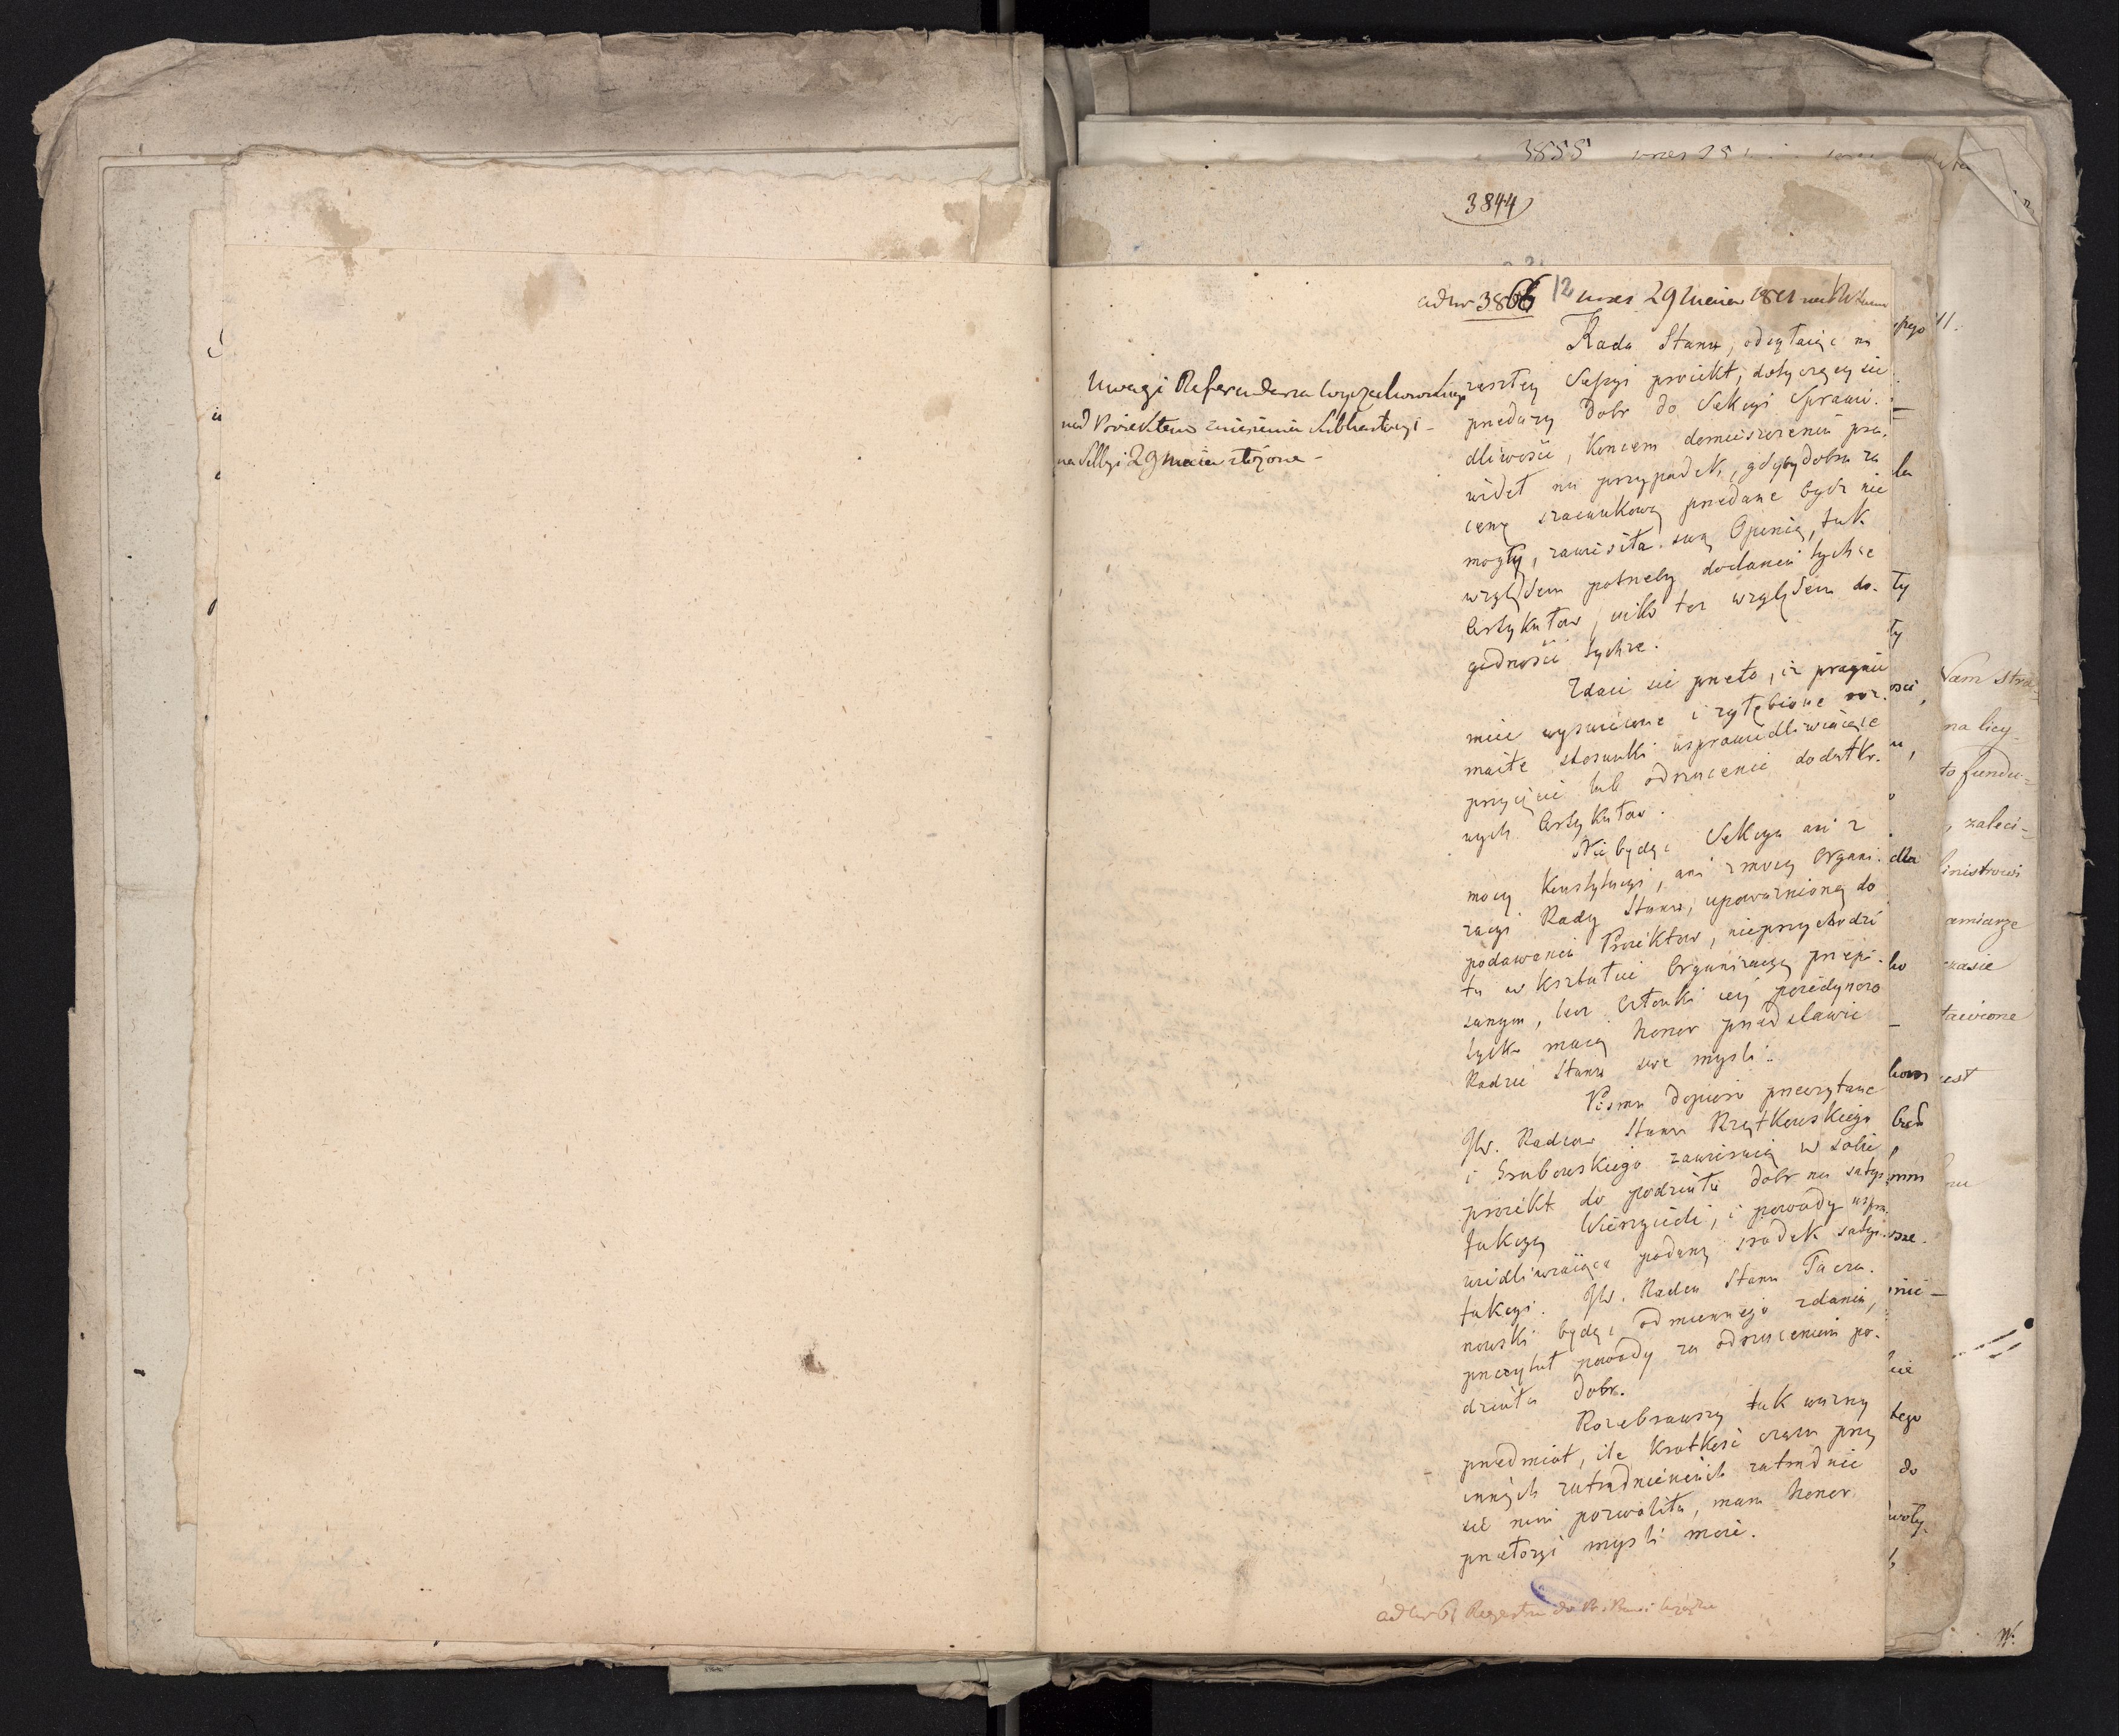 3855
3844
12
ad Nr 3866 29 Maia 1811
Uwagi Referendarza
nad Proiektem zniesienia Subhastacyi
na Sessyi 29 maia złożone
Rada Stanu, odsyłaiąc na
zeszłey Sessyi proiekt, dotyczący się
przedaży Dobr do Sekcyi Sprawi-
dliwości, koncem domieszczenia pra-
wideł na przypadek, gdyby dobra za
cenę szacunkową przedane bydź nie
mogły, zawiesiła swą Opinią, tak
względem potrzeby dodania tychże
Artykułow, iako też względem do-
godności tychże.
Zdaie się przeto, iż pragnie
mieć wyświecone i zgłębione roz-
maite stosunki usprawiedliwiaiące
przyięcie lub odrzucenie dodatko-
wych Artykułow.
Nie będąc Sekcya ani z
mocy Konstytucyi, ani z mocy Organi-
zacyi Rady Stanu, upoważnioną do
podawania Proiektow, nieprzychodzi
tu w kształcie Organizacyą przepi-
sanym, lecz Członki iey poiedynczo
tylko maią honor przedstawić
Radzie Stanu swe mysli.
Pisma dopiero przeczytane
JW. Radcow Stanu Rzętkowskiego
i Grabowskiego zawieraią w sobie
proiekt do podziału dobr na satys-
fakcyą Wierzycieli, i powody uspra-
widliwiaiące podany srodek satys-
fakcyi. JW. Radca Stanu Tacza-
nowski będąc odmiennego zdania,
przeczytał powody za odrzuceniem po-
działu Dobr.
Rozebrawszy tak ważny
przedmiot, ile krotkość czasu przy
innych zatrudnieniach zatrudnić
się nim pozwoliła, mam honor
przełożyć mysli moie.
ad Nr 61 Regestru do
ła
ły
ły
ości,
dla
ko
nie
tego
do
woły-
11.
Nam stra-
na licy-
to fundu-
, zaleci-
inistrowi
amiarze
czasie
tawione
iest